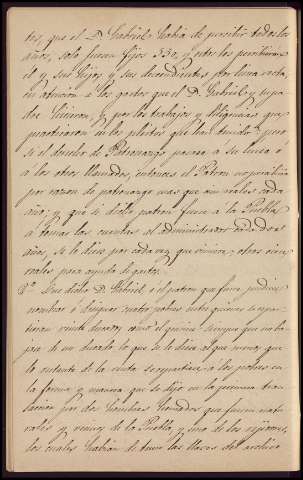 tes, que el D. Gabriel habia de percibir todos los
años, solo fuesen fijos 550, y estos los percibiria
él y sus hijos y sus descendientes por linea recta,
en atencion a los gastos que el D. Gabriel y su pa-
dre hicieron, y por los trabajos y diligencias que
practicaron en los pleitos que han tenido: pero
si el derecho de Patronazgo pasara a su linea o
a los otros llamados, entonces el Patron no percibiria
por razon de patronazgo mas que mil reales cada
año; y que si dicho patron fuese a la Puebla
a tomar las cuentas al administrador cada dos
años, se le diese por cada vez que viniera, otros cien
reales para ayuda de gastos.
2.º Que dicho D. Gabriel o el patron que fuere pudiera
nombrar ó designar cuatro pobres entre quienes se repar-
tieran veinte ducados, como él quisiera siempre que no ba-
jara de un ducado lo que se le diera al que menos; que
lo restante de la renta se repartiera a los pobres en
la forma y manera que se dijo en la primera tran-
sacion por dos hombres honrados que fuesen natu-
rales y vecinos de la Puebla, y uno de los regidores,
los cuales habian de tener las llaves del archivo